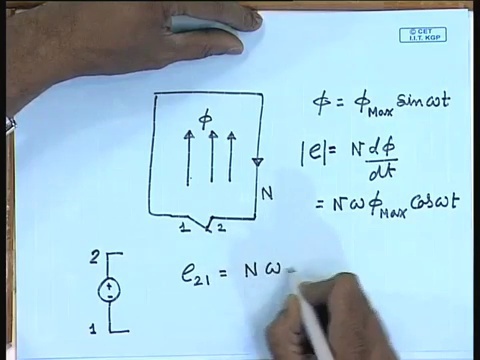 © CET
I.I.T. KGP
φ = φ_Max sin ωt
φ
|e| = N dφ/dt
N
= N ω φ_Max cos ωt
1 2
2
e₂₁ = N ω
+
-
1